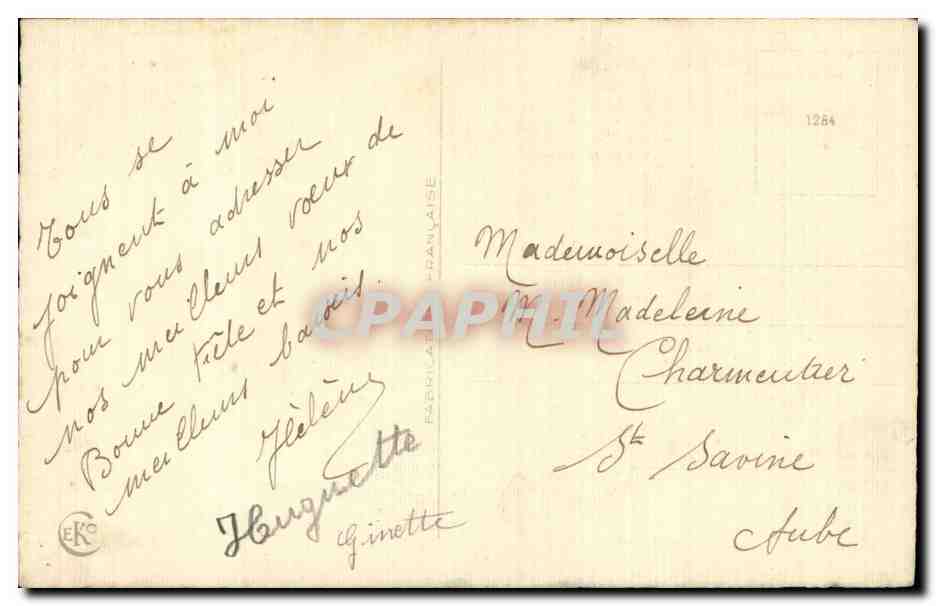 Tous se
joignent à moi
pour vous adresser
nos meilleurs vœux de
Bonne Fête et nos
meilleurs baisers.
Hélène
Huguette
Ginette
EKC
FABRICATION FRANÇAISE
1284
Mademoiselle
M. Madeleine
Charmentier
St Savine
Aube
CPAPHIL